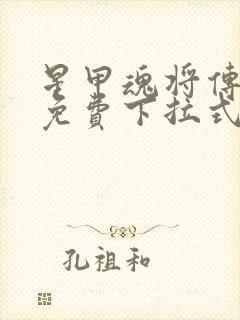 星甲魂将傳
免費下拉式
孔祖和